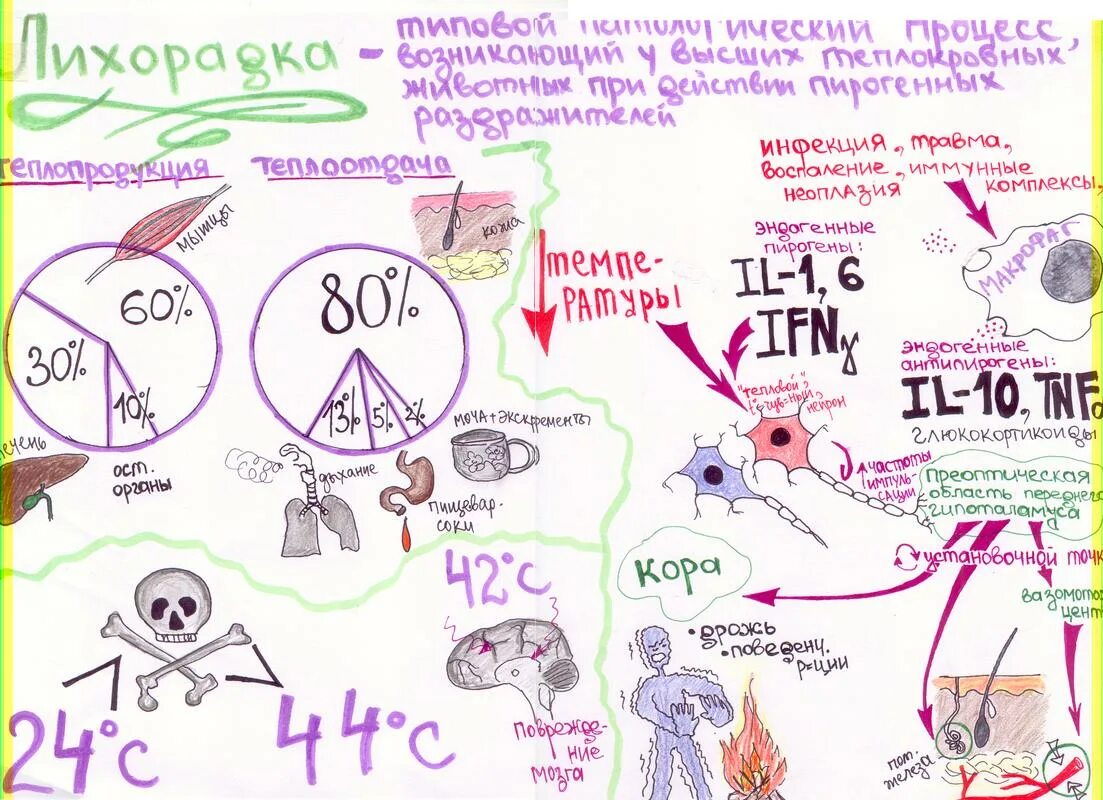 Лихорадка -
типовой патологический процесс,
возникающий у высших теплокровных
животных при действии пирогенных
раздражителей
теплопродукция
мышцы
60%
30%
10%
печень
ост.
органы
теплоотдача
кожа
80%
13%
5%
2%
дыхание
пищевар.
соки
моча+экскременты
24°С
44°С
42°С
поврежде-
ние
мозга
инфекция, травма,
воспаление, иммунные
неоплазия комплексы,
макрофаг
эндогенные
пирогены:
IL-1, 6
IFNγ
эндогенные
антипирогены:
IL-10, TNFα
глюкокортикоиды
↓ темпе-
ратуры
"тепловой",
t°чув-ный,
нейрон
↑ частоты
импуль
сации
Преоптическая
область переднего
гипоталамуса
установочной точк
вазомото
цент
кора
• дрожь
• поведенч.
р=ции
пот.
железа